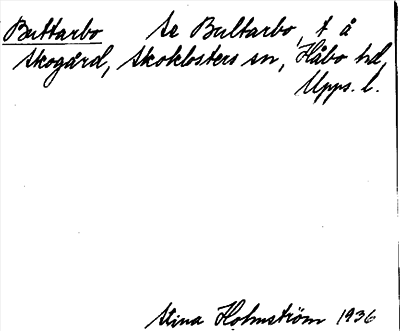 Buttarbo Se Bultarbo, t å
Skogård, Skoklosters sn, Håbo hd,
Upps. l.
Stina Holmström 1936